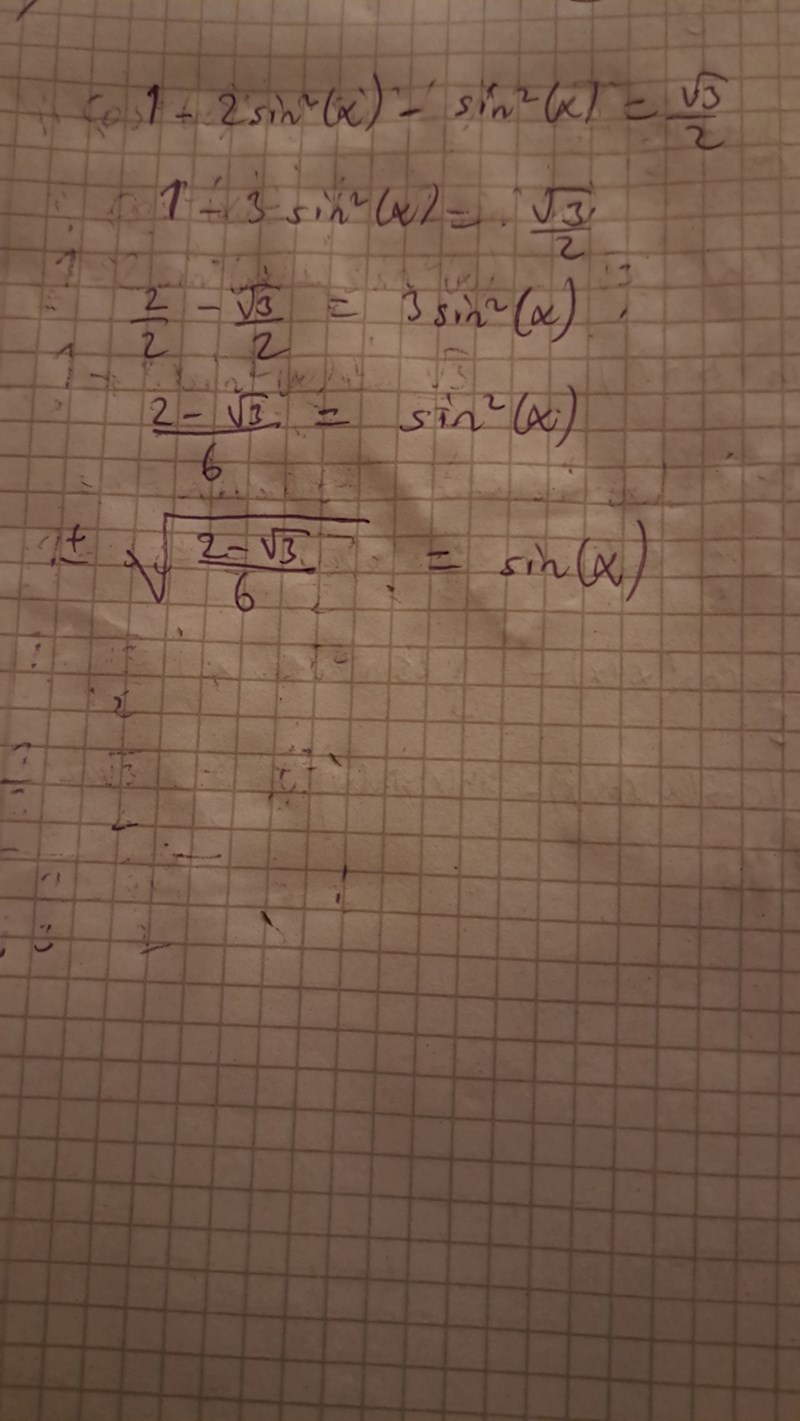 1 - 2sin²(x) - sin²(x) = √3/2
1 - 3 sin²(x) = √3/2
2/2 - √3/2 = 3sin²(x)
(2 - √3)/6 = sin²(x)
± √((2-√3)/6) = sin(x)